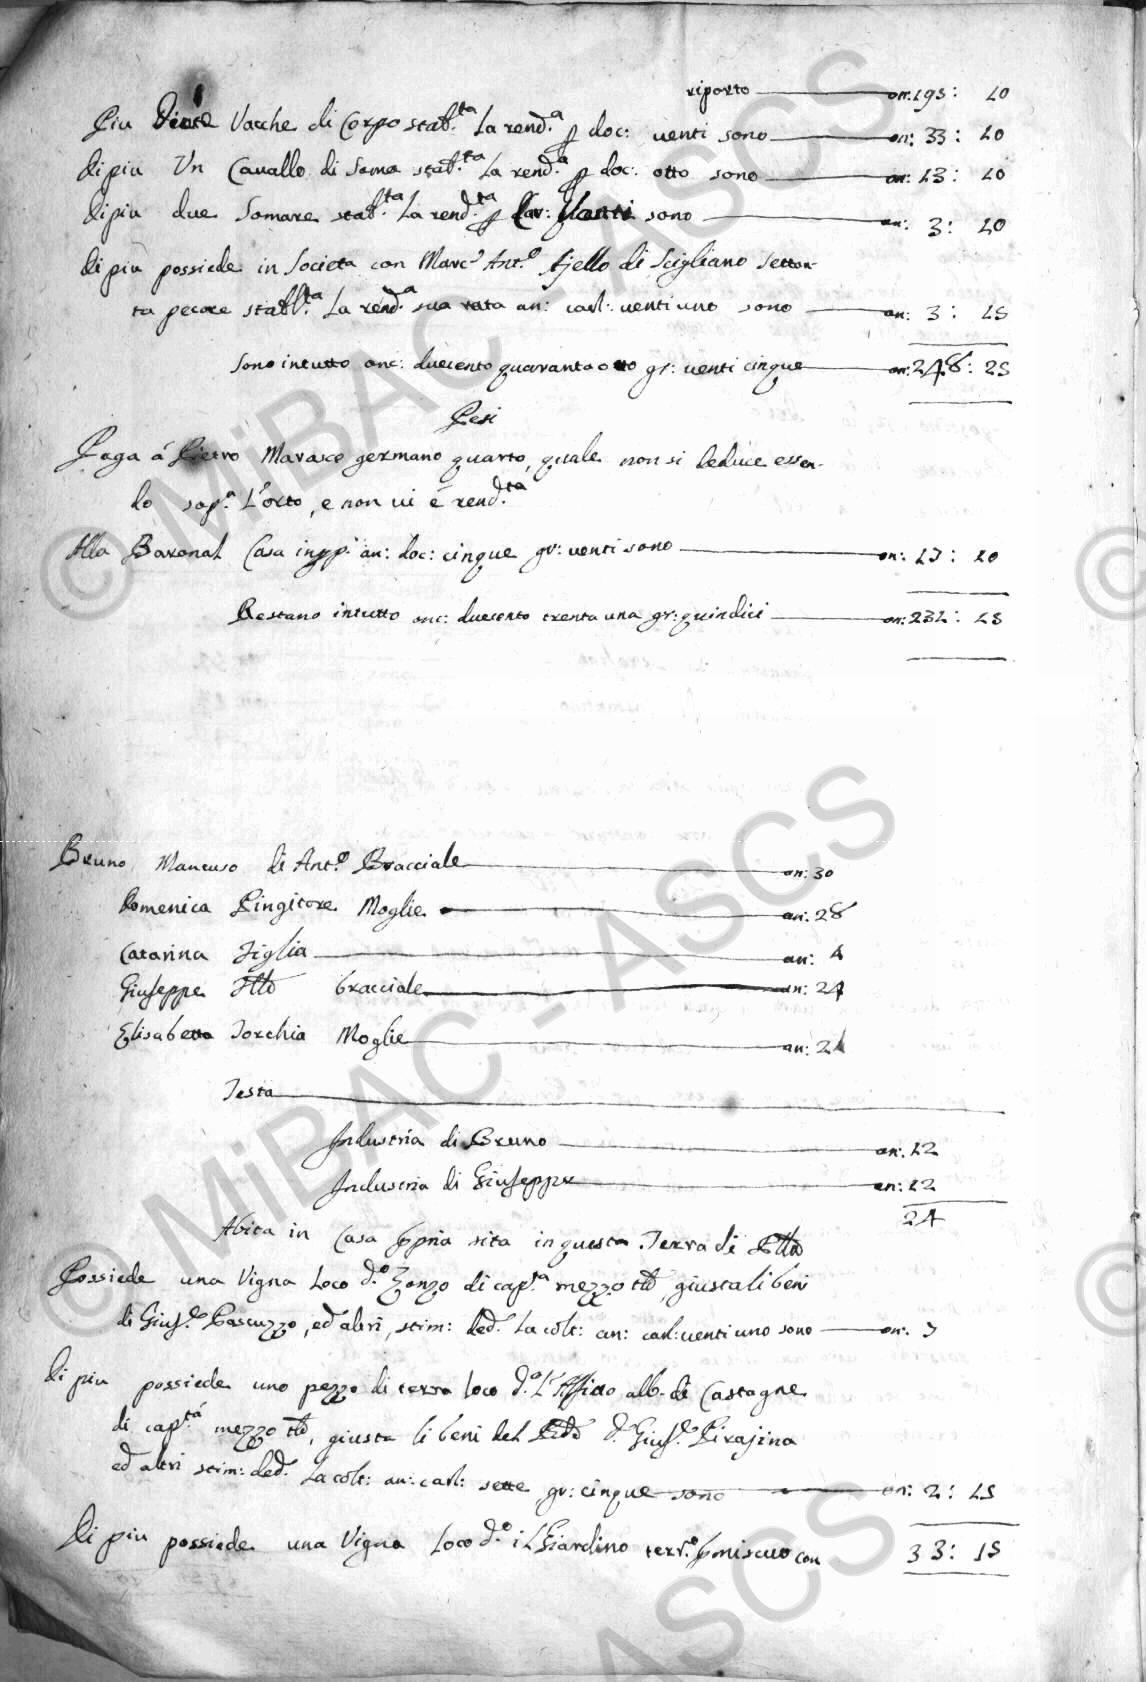 riporto on: 195: 10
Piu Dieci Vacche di Corpo stab.ta La rend.a p doc: venti sono on: 33: 10
di piu Un Cavallo di Soma stab.ta La rend.a p doc: otto sono on: 13: 10
di piu due Somare stab.ta La rend.ta p Car: Venti sono on: 3: 10
di piu possiede in Società con Marc' Ant.o Ajello di Scigliano Setton-
ta pecore stabl.ta La rend.a sua rata an: carl: venti uno sono on: 3: 15
Sono intutto onc: duecento quaranta otto gr: venti cinque on: 248: 25
Pesi
Paga á Pietro Marasco germano quarto, quale non si deduce essen-
do sop.a L'orto, e non vi é rend.ta
Alla Baronal Casa in pp: an: doc: cinque gr: venti sono on: 17: 10
Restano intutto onc: duecento trenta una gr: quindici on: 231: 15
Bruno Mancuso di Ant.o Bracciale an: 30
Domenica Pingitore Moglie an: 28
Catarina Figlia an: 4
Giuseppe Ftto bracciale an: 24
Elisabetta Torchia Moglie an: 21
Testa
Industria di Bruno on: 12
Industria di Giuseppe on: 12
24
Abita in Casa ppria sita in questa Terra di
Possiede una Vigna Loco d.o Zonzo di cap.ta mezzo tto, giusta li beni
di Gius.e Pascuzzo, ed altri, stim: ded. La colt: an: carl: venti uno sono on: 7
di piu possiede uno pezzo di terra Loco d.o L'Affitto alb. di Castagne
di cap.tá mezzo tto, giusta li beni del d. Gius.e Pirajina
ed altri stim: ded. La colt: an: carl: sette gr: cinque sono on: 2: 15
33: 15
di piu possiede una Vigna Loco d.o il Giardino terr.o pmiscuo con
© MiBAC - ASCS
© MiBAC - ASCS
ASCS
©
©